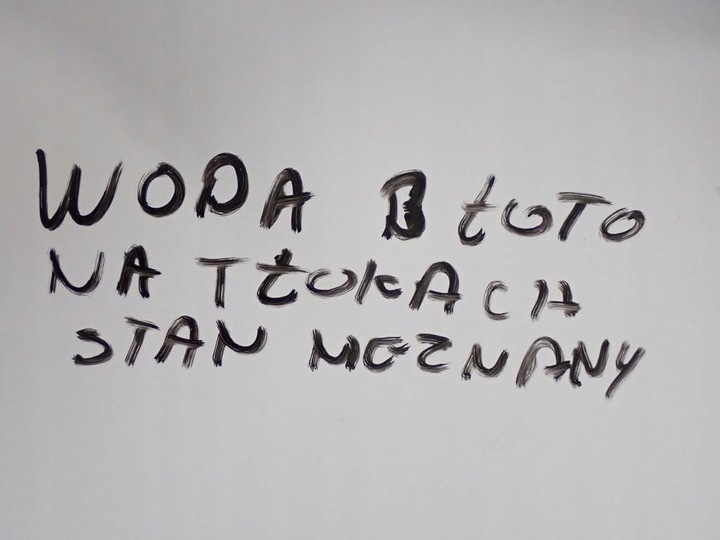 WODA BŁOTO
NA TŁOKACH
STAN NIEZNANY